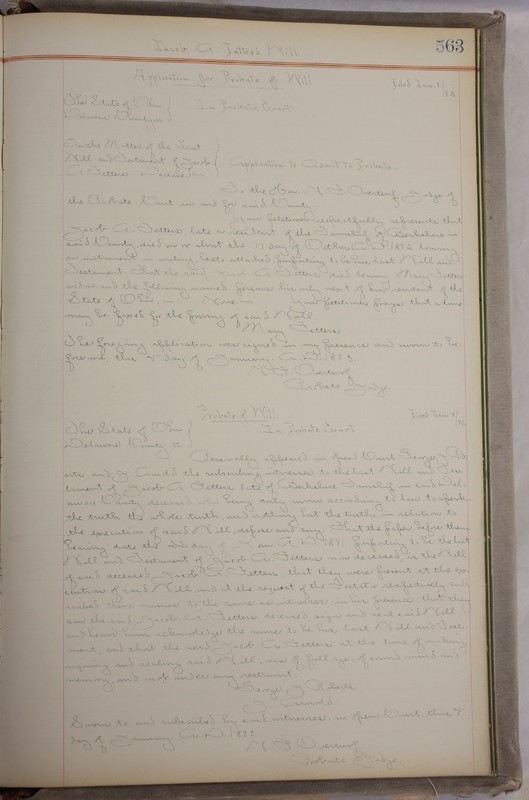 563
Jacob A. Fetters Will
Application for Probate of Will
Filed Jan 4/93
The State of Ohio }
Delaware County ss }
In Probate Court
In the Matter of the Last }
Will and Testament of Jacob }
A. Fetters Deceased }
Application to Admit to Probate
To the Hon. N. F. Overturf, Judge of
the Probate Court in and for said County.
Your petitioner respectfully represents that
Jacob A. Fetters late a resident of the Township of Berkshire in
said County, died on or about the 17 day of October A.D. 1892 leaving
an instrument in writing, hereto attached purporting to be his last Will and
Testament. That the said Jacob A. Fetters died leaving Mary Fetters
widow and the following named persons his only next of kin resident of the
State of Ohio, - None - Your Petitioner prays that a time
may be fixed for the proving of said Will.
Mary Fetters
The foregoing application was signed in my presence and sworn to be-
fore me, this 4" day of January, A.D. 1893
N. F. Overturf
Probate Judge.
Probate of Will
Filed Jan 4/93
The State of Ohio }
Delaware County ss }
In Probate Court
Personally appeared in open Court George Y. Rob-
erts and Y. Arnold the subscribing witnesses to the last Will and Tes-
tament of Jacob A. Fetters late of Berkshire Township in said Del-
aware County, deceased, who being duly sworn according to law to speak
the truth, the whole truth, and nothing but the truth, in relation to
the execution of said Will, depose and say, That the paper before them
bearing date the day of A.D. 1891 purporting to be the last
Will and Testament of Jacob A. Fetters now deceased, is the Will
of said deceased, Jacob A. Fetters that they were present at the exe-
cution of said Will, and at the request of the Testator respectively sub-
scribed their names to the same as witnesses, in his presence that they
saw the said Jacob A. Fetters deceased sign and seal said Will
and heard him acknowledge the same to be his last Will and Testa-
ment, and that the said Jacob A. Fetters at the time of making,
signing and sealing said Will, was of full age, of sound mind and
memory, and not under any restraint.
George Y. Roberts
Y. Arnold.
Sworn to and subscribed by said witnesses in open Court, this 4"
day of January, A.D. 1893
N. F. Overturf
Probate Judge.